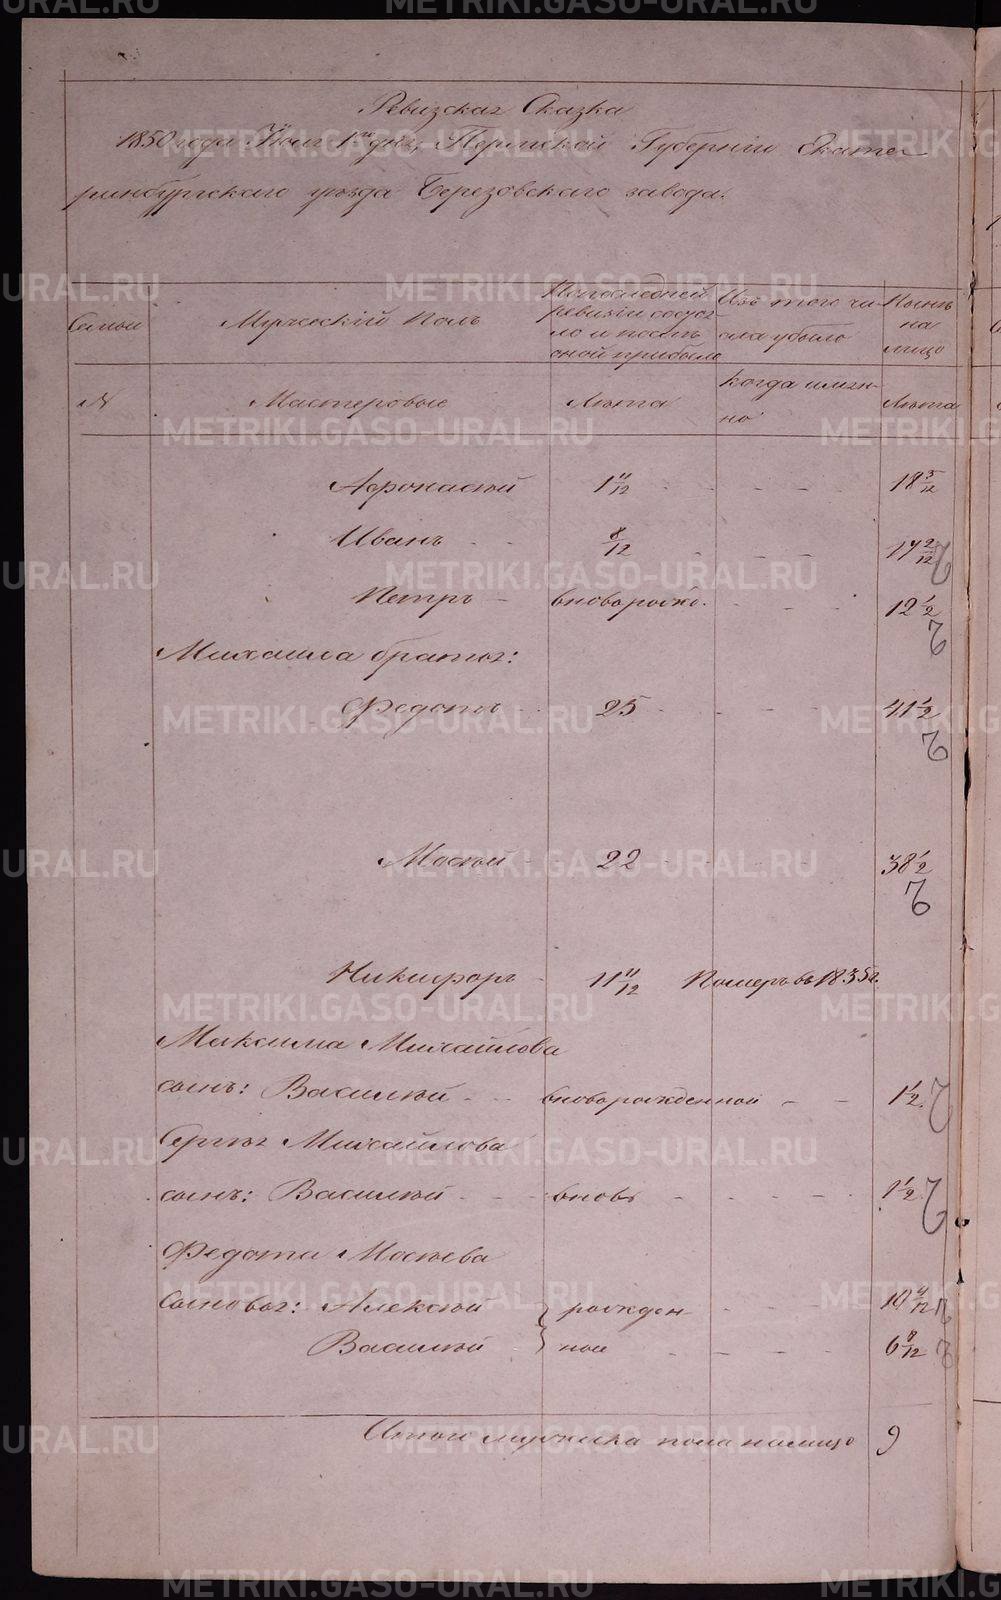 Ревизская Сказка
1850 года Июля 1го дня, Пермской Губернии Екате-
ринбургскаго уезда Березовскаго завода.
Семьи
Мужескій Полъ
По последней
ревизіи состоя-
ло и после
оной прибыло
Изъ того чи-
сла убыло
Ныне
на
лицо
№
Мастеровые
Лета
когда имян-
но
Лета
Афонасей 1 11/12 - - - 18 5/12
Иванъ - - 8/12 - - - 17 2/12
Петръ - вноворожд. - - - 12 1/2
Михаила братья:
Федотъ - - 25 - - - 41 1/2
Мосей - 22 - - - 38 1/2
Никифоръ - 11 11/12 Померъ въ 1835 г.
Максима Михайлова
сынъ: Василей - - вноворожденной - - 1 1/2
Сергея Михайлова
сынъ: Василей - - вновь - - - 1 1/2
Федота Мосеева
сыновья: Алексей } рожден - - -
Василей } ные - - - 6 8/12
Итого мужеска пола налицо 9
METRIKI.GASO-URAL.RU